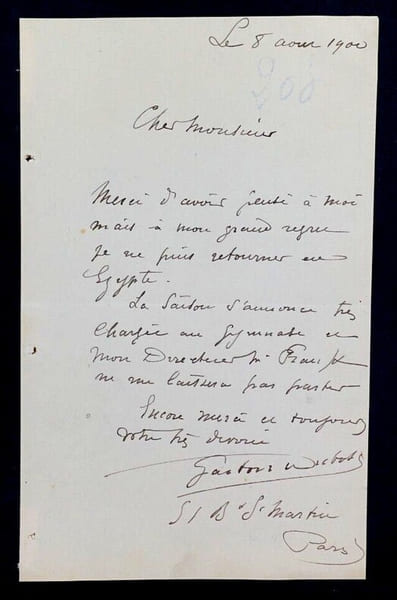 Le 8 aout 1900
200
Cher Monsieur
Merci d'avoir pensé à moi
mais à mon grand regret
je ne puis retourner en
Egypte.
La Saison s'annonce très
chargée au Gymnase et
mon Directeur Mr Franck
ne me laissera pas partir
Encore merci et toujours
votre très dévoué
Gaston
51 Bd St Martin
Paris